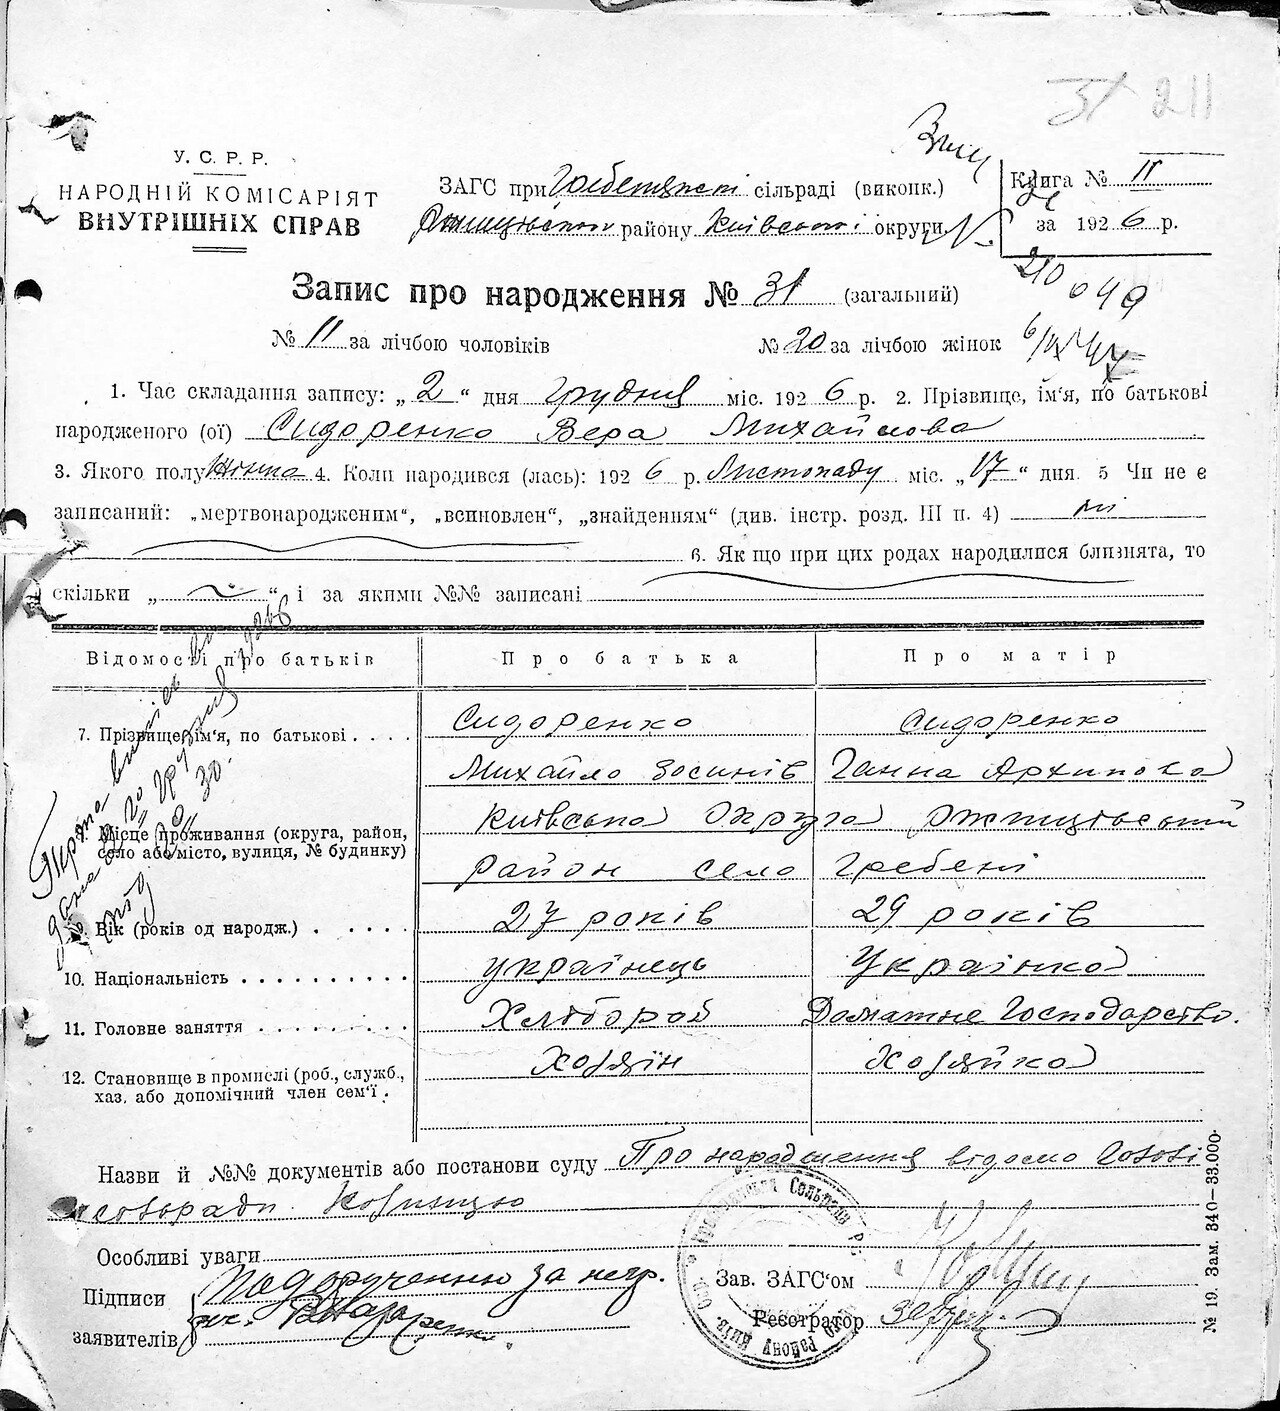 31 211
У. С. Р. Р.
НАРОДНІЙ КОМІСАРІЯТ
ВНУТРІШНІХ СПРАВ
ЗАГС при сільраді (виконк.)
району Київської округи
Книга № II
за 1926 р.
Запис про народження № 31 (загальний)
№ 11 за лічбою чоловіків № 20 за лічбою жінок
1. Час складання запису: „ 2 “ дня Грудня міс. 1926 р. 2. Прізвище, ім'я, по батькові
народженого (ої) Сидоренко Вера Михайлова
3. Якого полу Жінка 4. Коли народився (лась): 1926 р. Листопаду міс. „ 17 “ дня. 5 Чи не є
записаний: „мертвонародженим“, „всиновлен“, „знайденням“ (див. інстр. розд. III п. 4) ні
6. Як що при цих родах народилися близнята, то
скільки „ “ і за якими №№ записані
Відомості про батьків Про батька Про матір
7. Прізвище, ім'я, по батькові . . . . Сидоренко Сидоренко
Михайло Зосимів Ганна Архипова
Місце проживання (округа, район, село або місто, вулиця, № будинку) Київська Округа Ржищівський
район село Гребені
Вік (років од народж.) . . . . . 27 років 29 років
10. Національність . . . . . . . . . . українець Українка
11. Головне заняття . . . . . . . . . Хлібороб Домашне Господарство.
12. Становище в промислі (роб., служб., хаз. або допомічний член сем'ї . Хозяін Хозяйка
Назви й №№ документів або постанови суду Про народження відомо Голові
сільради
Особливі уваги
Підписи По дорученню за негр.
заявителів
Зав. ЗАГС'ом
Реєстратор
№ 19. Зам. 840—33.000.